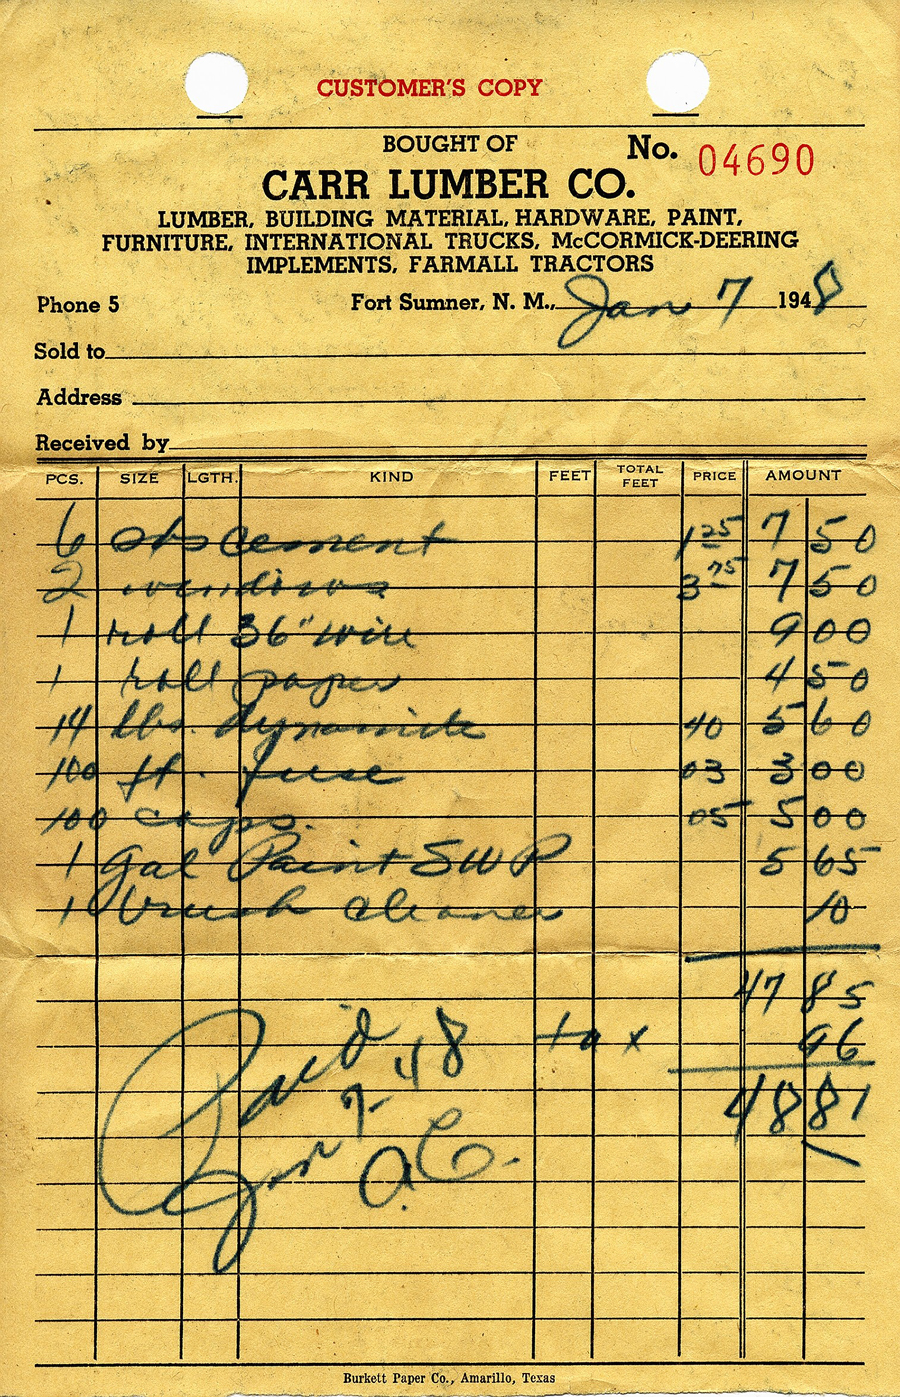 CUSTOMER'S COPY
BOUGHT OF No. 04690
CARR LUMBER CO.
LUMBER, BUILDING MATERIAL, HARDWARE, PAINT,
FURNITURE, INTERNATIONAL TRUCKS, McCORMICK-DEERING
IMPLEMENTS, FARMALL TRACTORS
Phone 5 Fort Sumner, N. M., Jan 7 1948
Sold to
Address
Received by
PCS. SIZE LGTH. KIND FEET TOTAL FEET PRICE AMOUNT
6 cement 1 25 7 50
2 windows 3 75 7 50
1 roll 36" wire 9 00
1 roll paper 4 50
14 lbs. dynamite 40 5 60
100 ft. fuse 03 3 00
100 caps. 05 5 00
1 gal Paint SWP 5 65
1 brush cleaner 10
47 85
tax 96
48 81
Paid
Jan 7-48
O.C.
Burkett Paper Co., Amarillo, Texas